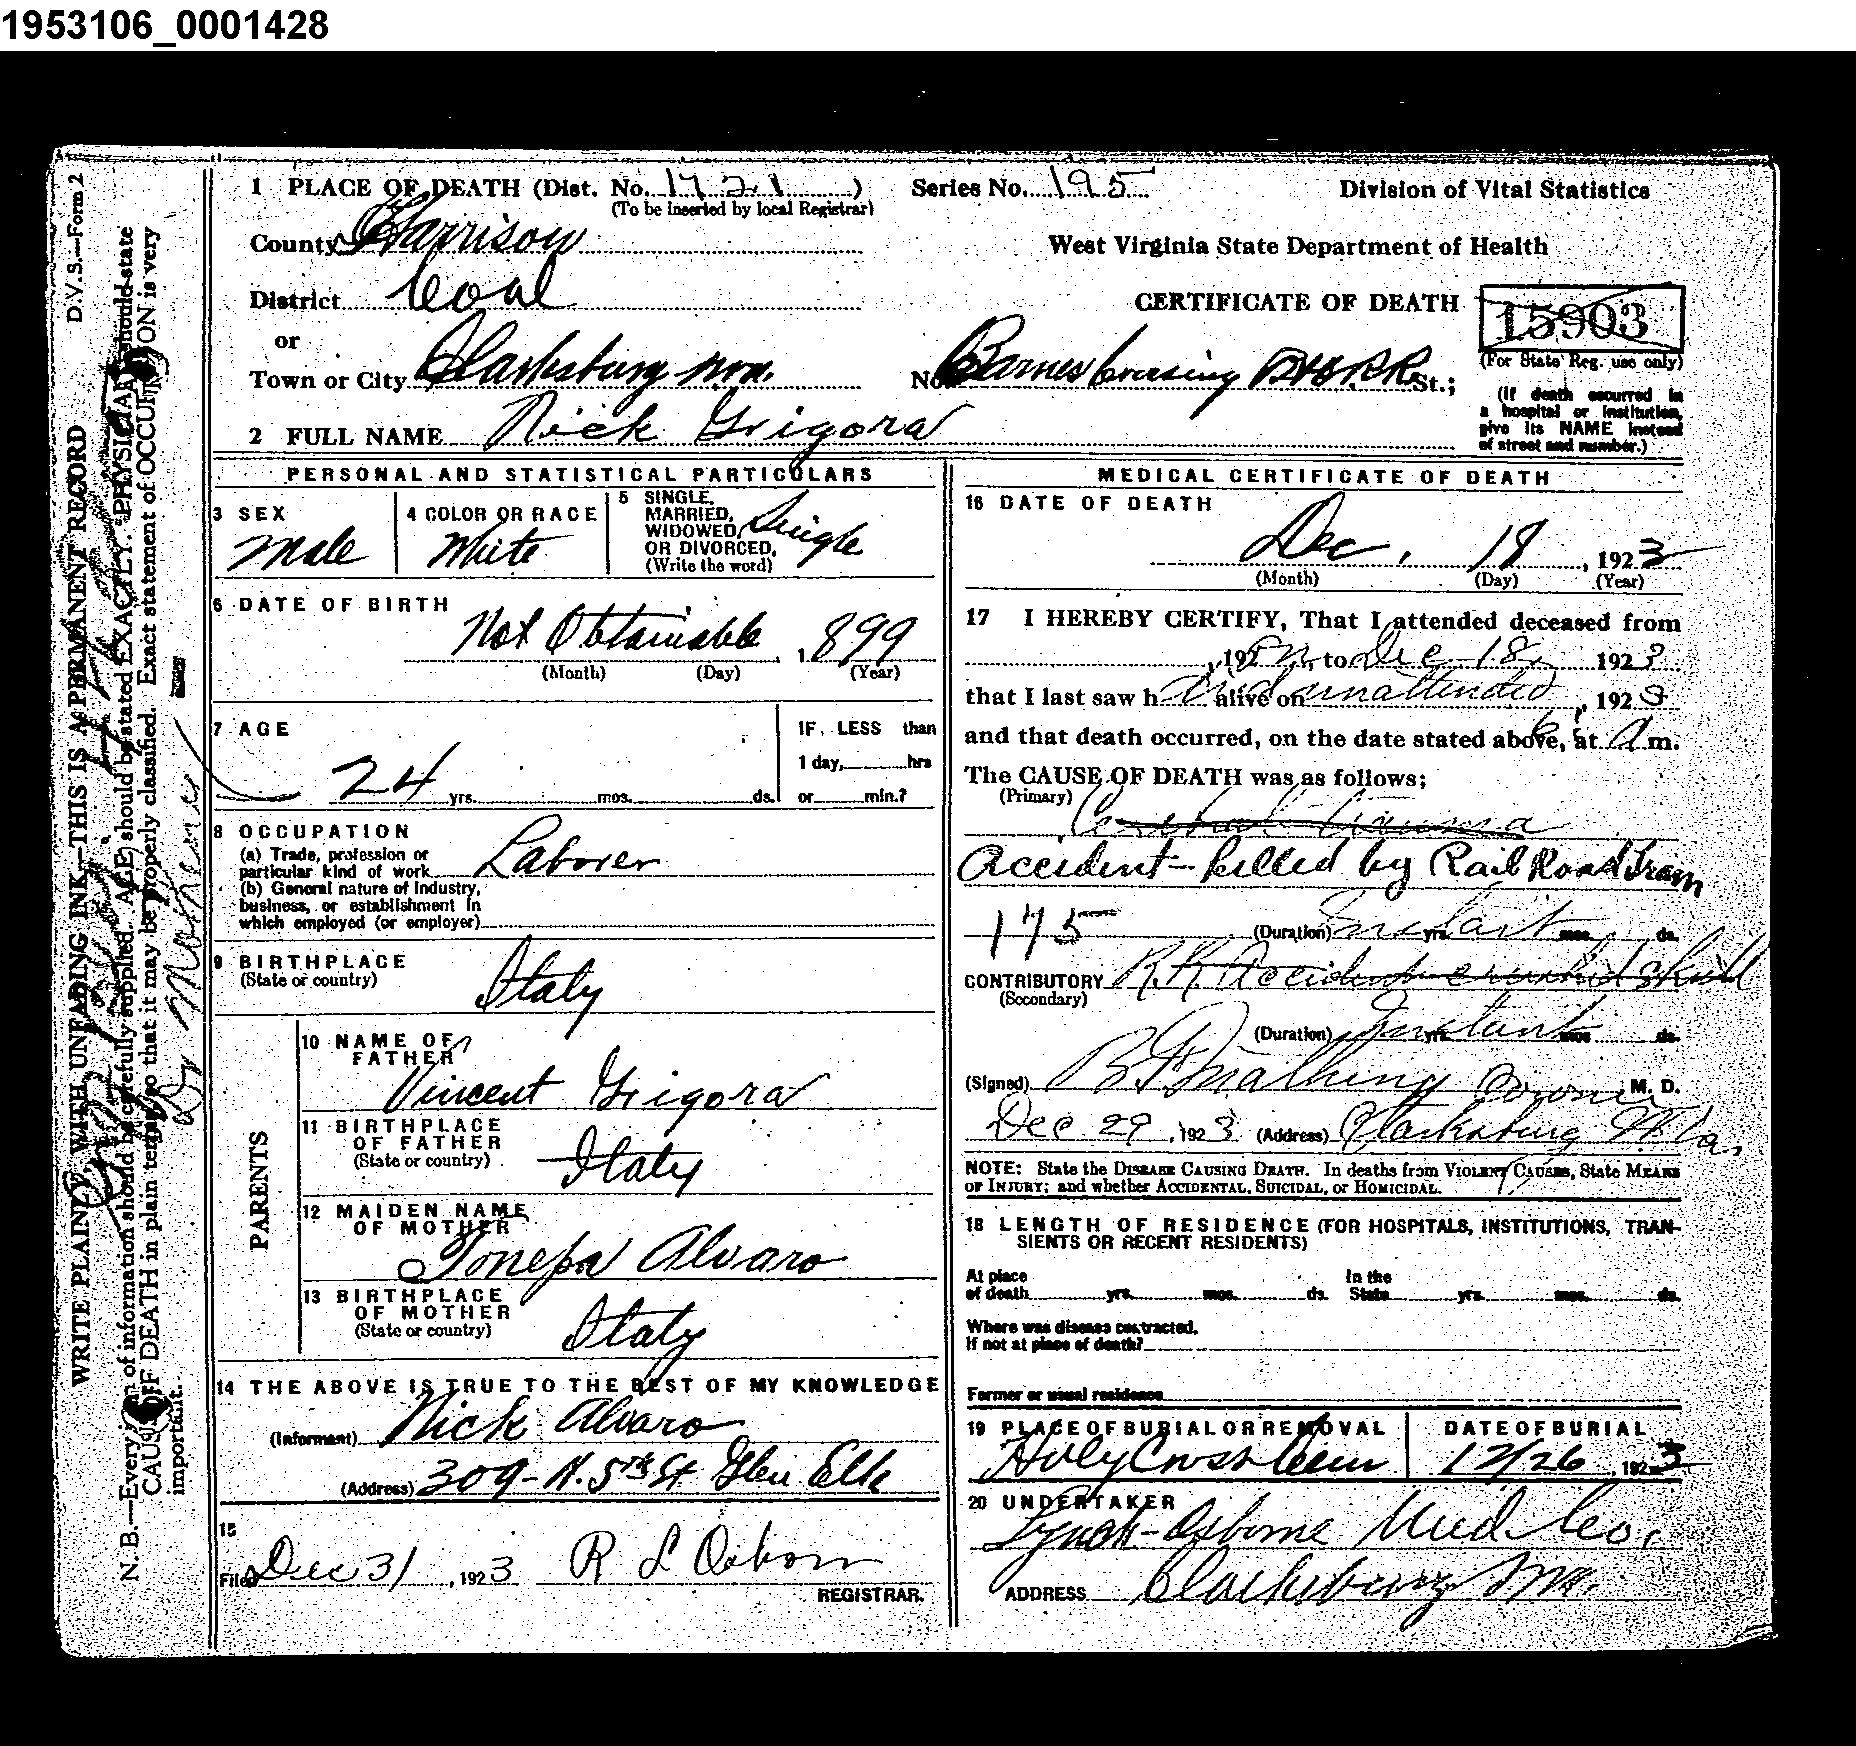 1953106_0001428
1 PLACE OF DEATH (Dist. No. 1721) Series No. 195 Division of Vital Statistics
(To be inserted by local Registrar)
County Harrison West Virginia State Department of Health
District Coal CERTIFICATE OF DEATH 15903
or (For State Reg. use only)
Town or City Clarksburg No. Barnes Crossing B&O R.R. St.;
(If death occurred in a hospital or institution, give its NAME instead of street and number.)
2 FULL NAME Nick Grigora
PERSONAL AND STATISTICAL PARTICULARS
3 SEX Male
4 COLOR OR RACE White
5 SINGLE, MARRIED, WIDOWED, OR DIVORCED, (Write the word) Single
6 DATE OF BIRTH
Not Obtainable, 899
(Month) (Day) (Year)
7 AGE
24 yrs. mos. ds.
IF LESS than
1 day, hrs
or min.?
8 OCCUPATION
(a) Trade, profession or
particular kind of work Laborer
(b) General nature of industry,
business, or establishment in
which employed (or employer)
9 BIRTHPLACE
(State or country) Italy
PARENTS
10 NAME OF FATHER
Vincent Grigora
11 BIRTHPLACE OF FATHER
(State or country) Italy
12 MAIDEN NAME OF MOTHER
Alvaro
13 BIRTHPLACE OF MOTHER
(State or country) Italy
14 THE ABOVE IS TRUE TO THE BEST OF MY KNOWLEDGE
(Informant) Nick Alvaro
(Address) 309- N. 5th St Glen Elk
15
Filed Dec 31, 1923 R L Osborn
REGISTRAR.
MEDICAL CERTIFICATE OF DEATH
16 DATE OF DEATH
Dec. 18, 1923
(Month) (Day) (Year)
17 I HEREBY CERTIFY, That I attended deceased from
, 192 to Dec 18, 1923
that I last saw h alive on unattended, 1923
and that death occurred, on the date stated above, at 6 a m.
The CAUSE OF DEATH was as follows;
(Primary)
Cerebral trauma
Accident- killed by Rail Road Train
175 (Duration) yrs. mos. ds.
CONTRIBUTORY R.R. Accident crushed skull
(Secondary)
(Duration) Instant yrs. mos. ds.
(Signed) Coroner M. D.
Dec 29, 1923 (Address) Clarksburg W. Va.
NOTE: State the DISEASE CAUSING DEATH. In deaths from VIOLENT CAUSES, State MEANS
OF INJURY; and whether ACCIDENTAL, SUICIDAL, or HOMICIDAL.
18 LENGTH OF RESIDENCE (FOR HOSPITALS, INSTITUTIONS, TRAN-
SIENTS OR RECENT RESIDENTS)
At place of death yrs. mos. ds. In the State yrs. mos. ds.
Where was disease contracted,
If not at place of death?
Former or usual residence
19 PLACE OF BURIAL OR REMOVAL DATE OF BURIAL
Holy Cross Cem 12/26, 1923
20 UNDERTAKER
Lynch-Osborne Und. Co.
ADDRESS Clarksburg
D.V.S.—Form 2
WRITE PLAINLY, WITH UNFADING INK—THIS IS A PERMANENT RECORD
N. B.—Every item of information should be carefully supplied. AGE should be stated EXACTLY. PHYSICIANS should state
CAUSE OF DEATH in plain terms, so that it may be properly classified. Exact statement of OCCUPATION is very
important.